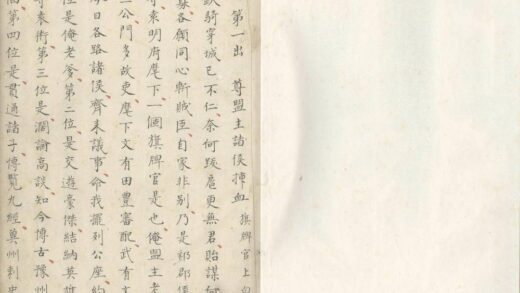 第一出　尊盟主諸侯揷血　旗牌官上白
騎穿城已不仁奈何跋扈更無君貽謀何
各願同心斬賊臣自家非別乃是祁
袁明府麾下一個旗牌官是也俺盟主老
二公門多故吏麾下文有田豐審配武有
日各路諸侯齊来議事命我擺列公座約
位是俺老爹第二位是交遊豪傑結納英
袁術第三位是濶論高談知今博古豫州
第四位是貫通諸子博覽九經兖州刺史